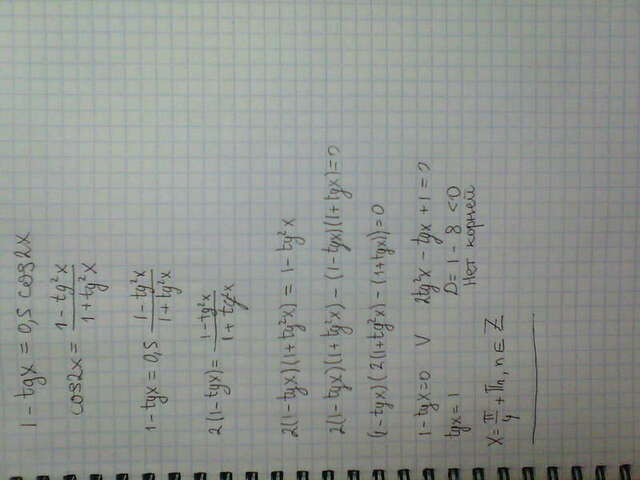 1 - tgx = 0,5 cos2x
cos2x = (1 - tg²x)/(1 + tg²x)
1 - tgx = 0,5 (1 - tg²x)/(1 + tg²x)
2(1 - tgx) = (1 - tg²x)/(1 + tg²x)
2(1 - tgx)(1 + tg²x) = 1 - tg²x
2(1 - tgx)(1 + tg²x) - (1 - tgx)(1 + tgx) = 0
(1 - tgx)(2(1 + tg²x) - (1 + tgx)) = 0
1 - tgx = 0 V 2tg²x - tgx + 1 = 0
tgx = 1 D = 1 - 8 < 0
Нет корней
x = π/4 + πn, n ∈ Z